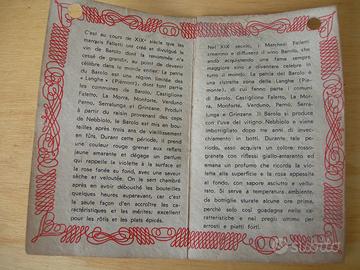 C'est au cours de XIXe siècle que les
marquis Falletti ont créé et divulgué le
vin de Barolo dont la renommée n'a
cessé de grandir, au point de devenir
célèbre dans le monde entier. La patrie
du Barolo est une région limitée des
« Langhe » (Piémont), dont font partie
les communes de Barolo, Castiglione
Faletto, La Morra, Monforte, Verduno
Perno, Serralunga et Grinzane. Produit
à partir du raisin des propres ceps
de Nebbiolo, le Barolo est mis en bou-
teilles après trois ans de vieillissement
en fûts. Durant cette période, il prend
une couleur rouge grenat aux reflets
jaune amarante et dégage un parfum
qui rappelle la violette à la surface et
la rose fanée au fond, avec une saveur
sèche et veloutée. On le sert chambré
après en avoir débouché les bouteilles
quelques heures auparavant, car c'est
la seule façon d'en accroître les ca-
ractéristiques et les mérites: excellent
pour les rôtis et les plats épicés.
Nel XIX secolo, i Marchesi Falletti
crearono e diffusero il vino Barolo, che
andò acquistando una fama sempre
maggiore sino a divenire celebre in
tutto il mondo. La patria del Barolo è
una ristretta zona delle Langhe (Pie-
monte), di cui fanno parte i comuni
di Barolo, Castiglione Falletto, La Mor-
ra, Monforte, Verduno, Perno, Serra-
lunga e Grinzane. Il Barolo si produce
con l'uva del vitigno Nebbiolo e viene
imbottigliato dopo tre anni di invec-
chiamento in botti. Durante tale pe-
riodo, esso acquista un colore rosso-
granata con riflessi giallo-amaranto ed
emana un profumo che ricorda la vio-
letta alla superficie e la rosa appassita
al fondo, con sapore asciutto e vellu-
tato. Si serve a temperatura ambiente,
da bottiglie sturate alcune ore prima,
perchè solo così guadagna nelle ca-
ratteristiche e nei pregi: ottimo per
arrosti e piatti forti.